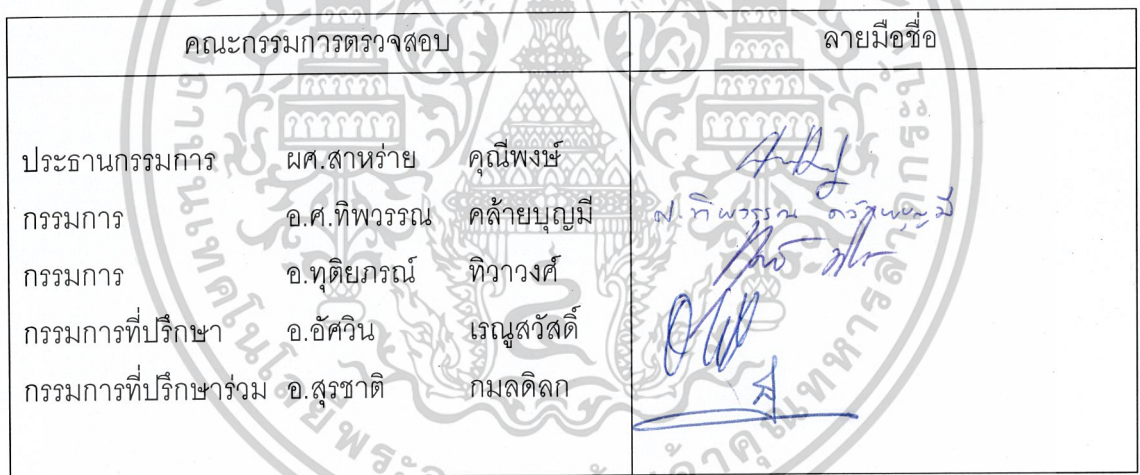 คณะกรรมการตรวจสอบ ลายมือชื่อ
ประธานกรรมการ ผศ.สาหร่าย คุณีพงษ์
กรรมการ อ.ศ.ทิพวรรณ คล้ายบุญมี ศ.ทิพวรรณ คล้ายบุญมี
กรรมการ อ.ทุติยภรณ์ ทิวาวงศ์
กรรมการที่ปรึกษา อ.อัศวิน เรณูสวัสดิ์
กรรมการที่ปรึกษาร่วม อ.สุรชาติ กมลดิลก